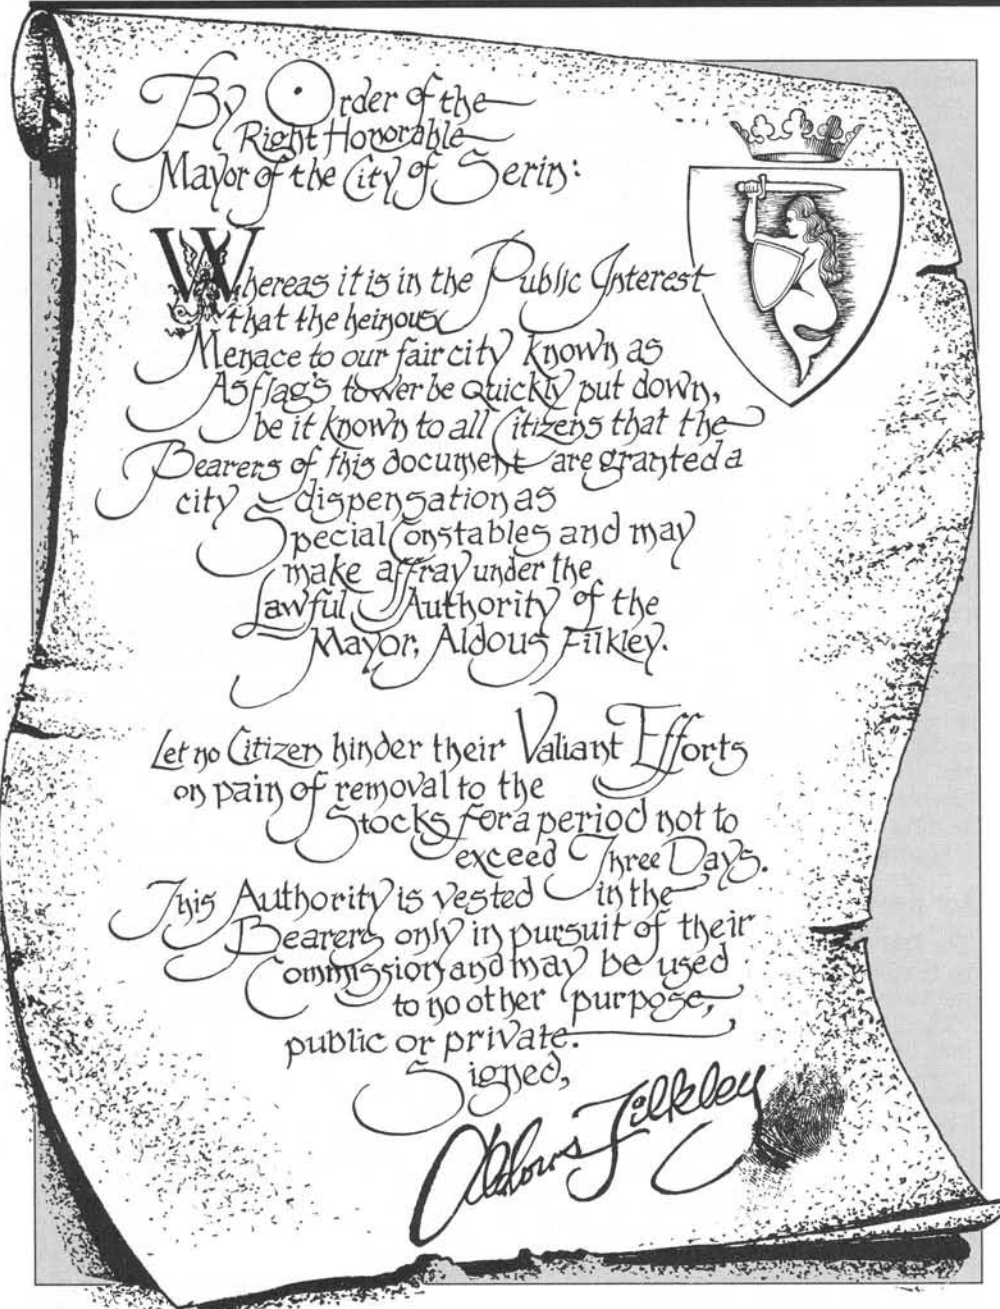 By Order of the
Right Honorable
Mayor of the City of Serin:
Whereas it is in the Public Interest
that the heinous
Menace to our fair city known as
Asflag's tower be quickly put down,
be it known to all Citizens that the
Bearers of this document are granted a
city dispensation as
Special Constables and may
make affray under the
Lawful Authority of the
Mayor, Aldous Filkley.
Let no Citizen hinder their Valiant Efforts
on pain of removal to the
Stocks for a period not to
exceed Three Days.
This Authority is vested in the
Bearers only in pursuit of their
Commission and may be used
to no other purpose,
public or private.
Signed,
Aldous Filkley